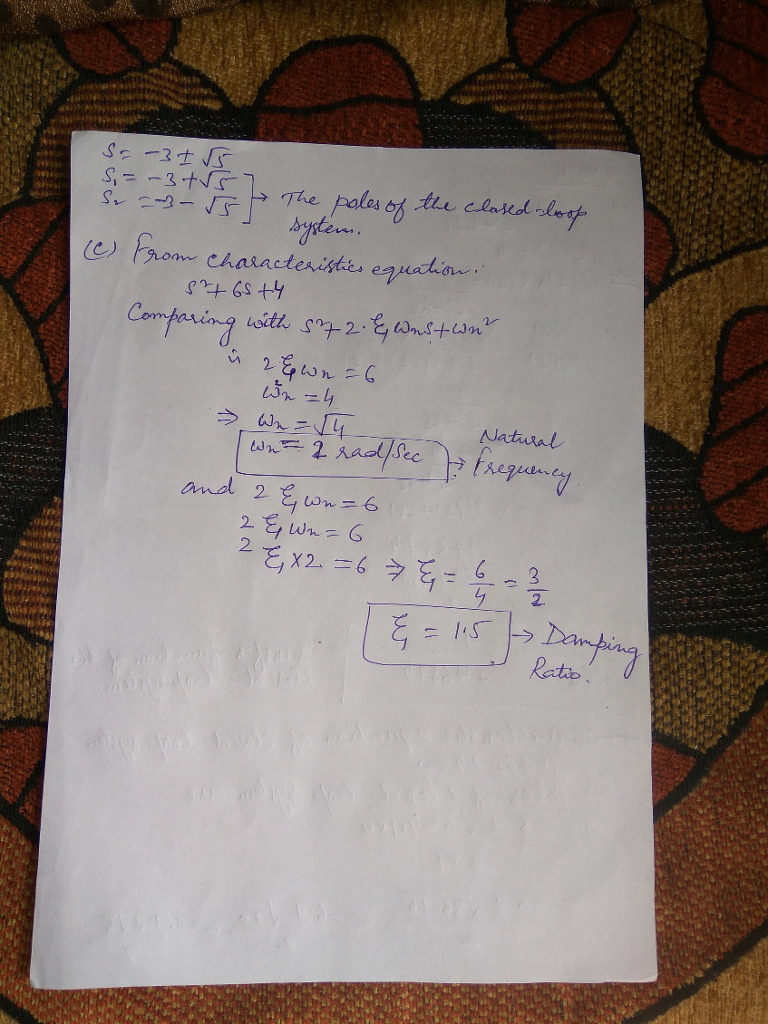 S = -3 ± √5
S₁ = -3 + √5
S₂ = -3 - √5 → The poles of the closed-loop
system.
(c) From characteristics equation.
s² + 6s + 4
Comparing with s² + 2·ξωns + ωn²
2ξωn = 6
ωn² = 4
⇒ ωn = √4
ωn = 2 rad/sec → Natural Frequency.
and 2ξωn = 6
2ξωn = 6
2ξ×2 = 6 ⇒ ξ = 6/4 = 3/2
ξ = 1.5 → Damping
Ratio.